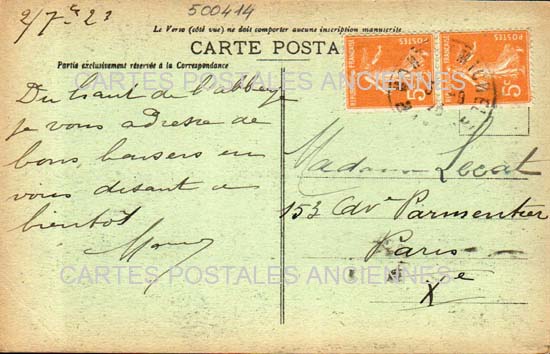 2/7re 23
500414
Le Verso (côté vue) ne doit comporter aucune inscription manuscrite.
CARTE POSTA
Partie exclusivement réservée à la Correspondance
CARTES POSTALES ANCIENNES
Du haut de l'abbaye
je vous adresse de
bons baisers en
vous disant à
bientôt
POSTES
5c
POSTES
5c
Madame Lecat
153 Av Parmentier
Paris
Xe
CARTES POSTALES ANCIENNES